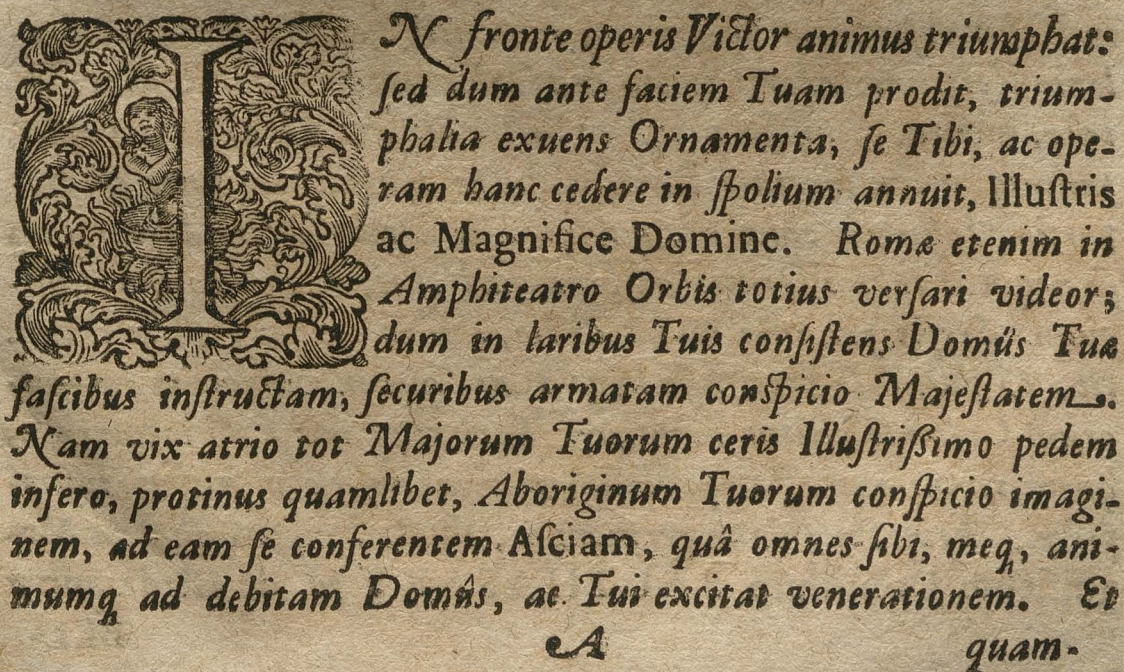 IN fronte operis Victor animus triumphat:
ſed dum ante faciem Tuam prodit, trium-
phalia exuens Ornamenta, ſe Tibi, ac ope-
ram hanc cedere in ſpolium annuit, Illuſtris
ac Magnifice Domine. Romæ etenim in
Amphiteatro Orbis totius verſari videor;
dum in laribus Tuis conſiſtens Domûs Tuæ
faſcibus inſtructam, ſecuribus armatam conſpicio Majeſtatem.
Nam vix atrio tot Majorum Tuorum ceris Illuſtriſsimo pedem
inſero, protinus quamlibet, Aboriginum Tuorum conſpicio imagi-
nem, ad eam ſe conferentem Aſciam, quâ omnes ſibi, meꝗ, ani-
mumꝗ ad debitam Domûs, ac Tui excitat venerationem. Et
A quam-